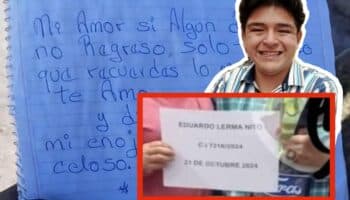 Mi Amor si Algun
no Regreso solo
que recuerdes lo
te Amo
y d
mi enoj
celoso.
EDUARDO LERMA NITO
21 DE OCTUBRE 2024